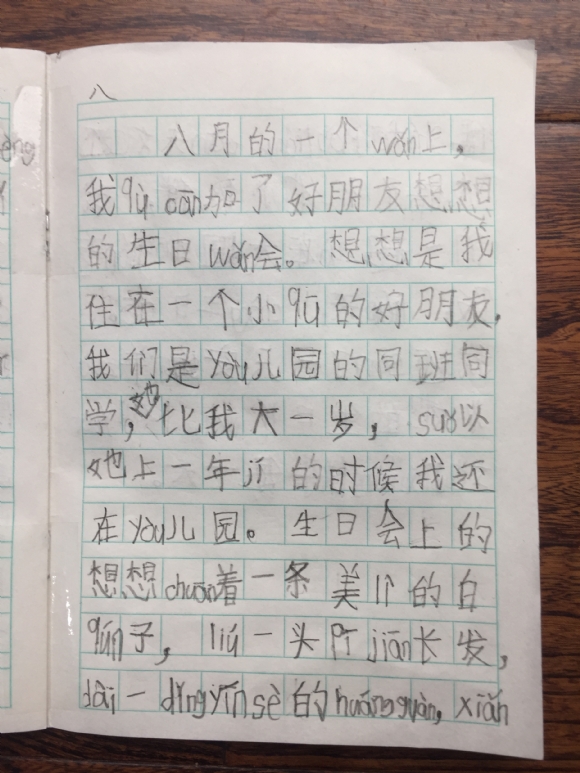 八
八月的一个wǎn上，
我qù cān加了好朋友想想
的生日wǎn会。想想是我
住在一个小qū的好朋友，
我们是yòu儿园的同班同
学，她比我大一岁，suǒ以
她上一年jí的时候我还
在yòu儿园。生日会上的
想想chuān着一条美lì的白
qún子，liú一头pī jiān长发，
dài一dǐng yín sè的huáng guàn，xiǎn